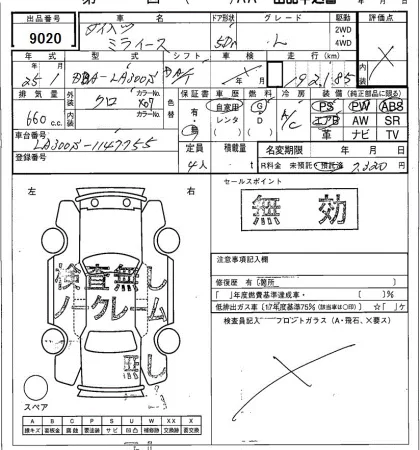 出品番号 車名 ドア形状 グレード 駆動 評価点
9020 ダイハツ ミライース 5Dr L 2WD 4WD
年式 型式 シフト 車検 走行(km) 内装
25年1月 DBA-LA300S 年 月 192,185
排気量 外装 カラーNo. 色替 保証書 車歴 燃料 冷房 装備 (純正部品に限る)
660c.c. クロ X07 有・無 自家用 G A/C PS PW ABS
内装 カラーNo. レンタ D エアB AW SR
革 ナビ TV
車台番号 LA300S-1147755 定員 積載量 名変期限 年 月 日
登録番号 4人 t R料金 未預託・預託済 7,320円
左 右
セールスポイント
無効
検査無し
ノークレーム
無
注意事項記入欄
修復歴 有(箇所 )
[ ]年度燃費基準達成車・[ ]%
低排出ガス車[17年度基準75%(該当車は○印)] ☆[ ]ケ
検査員記入 フロントガラス(A・飛石、×要ス)
スペア
A B C P S U W XX X
線キズ 板金 腐蝕 要塗装 サビ 凹凸 補修跡 交換跡 要交換